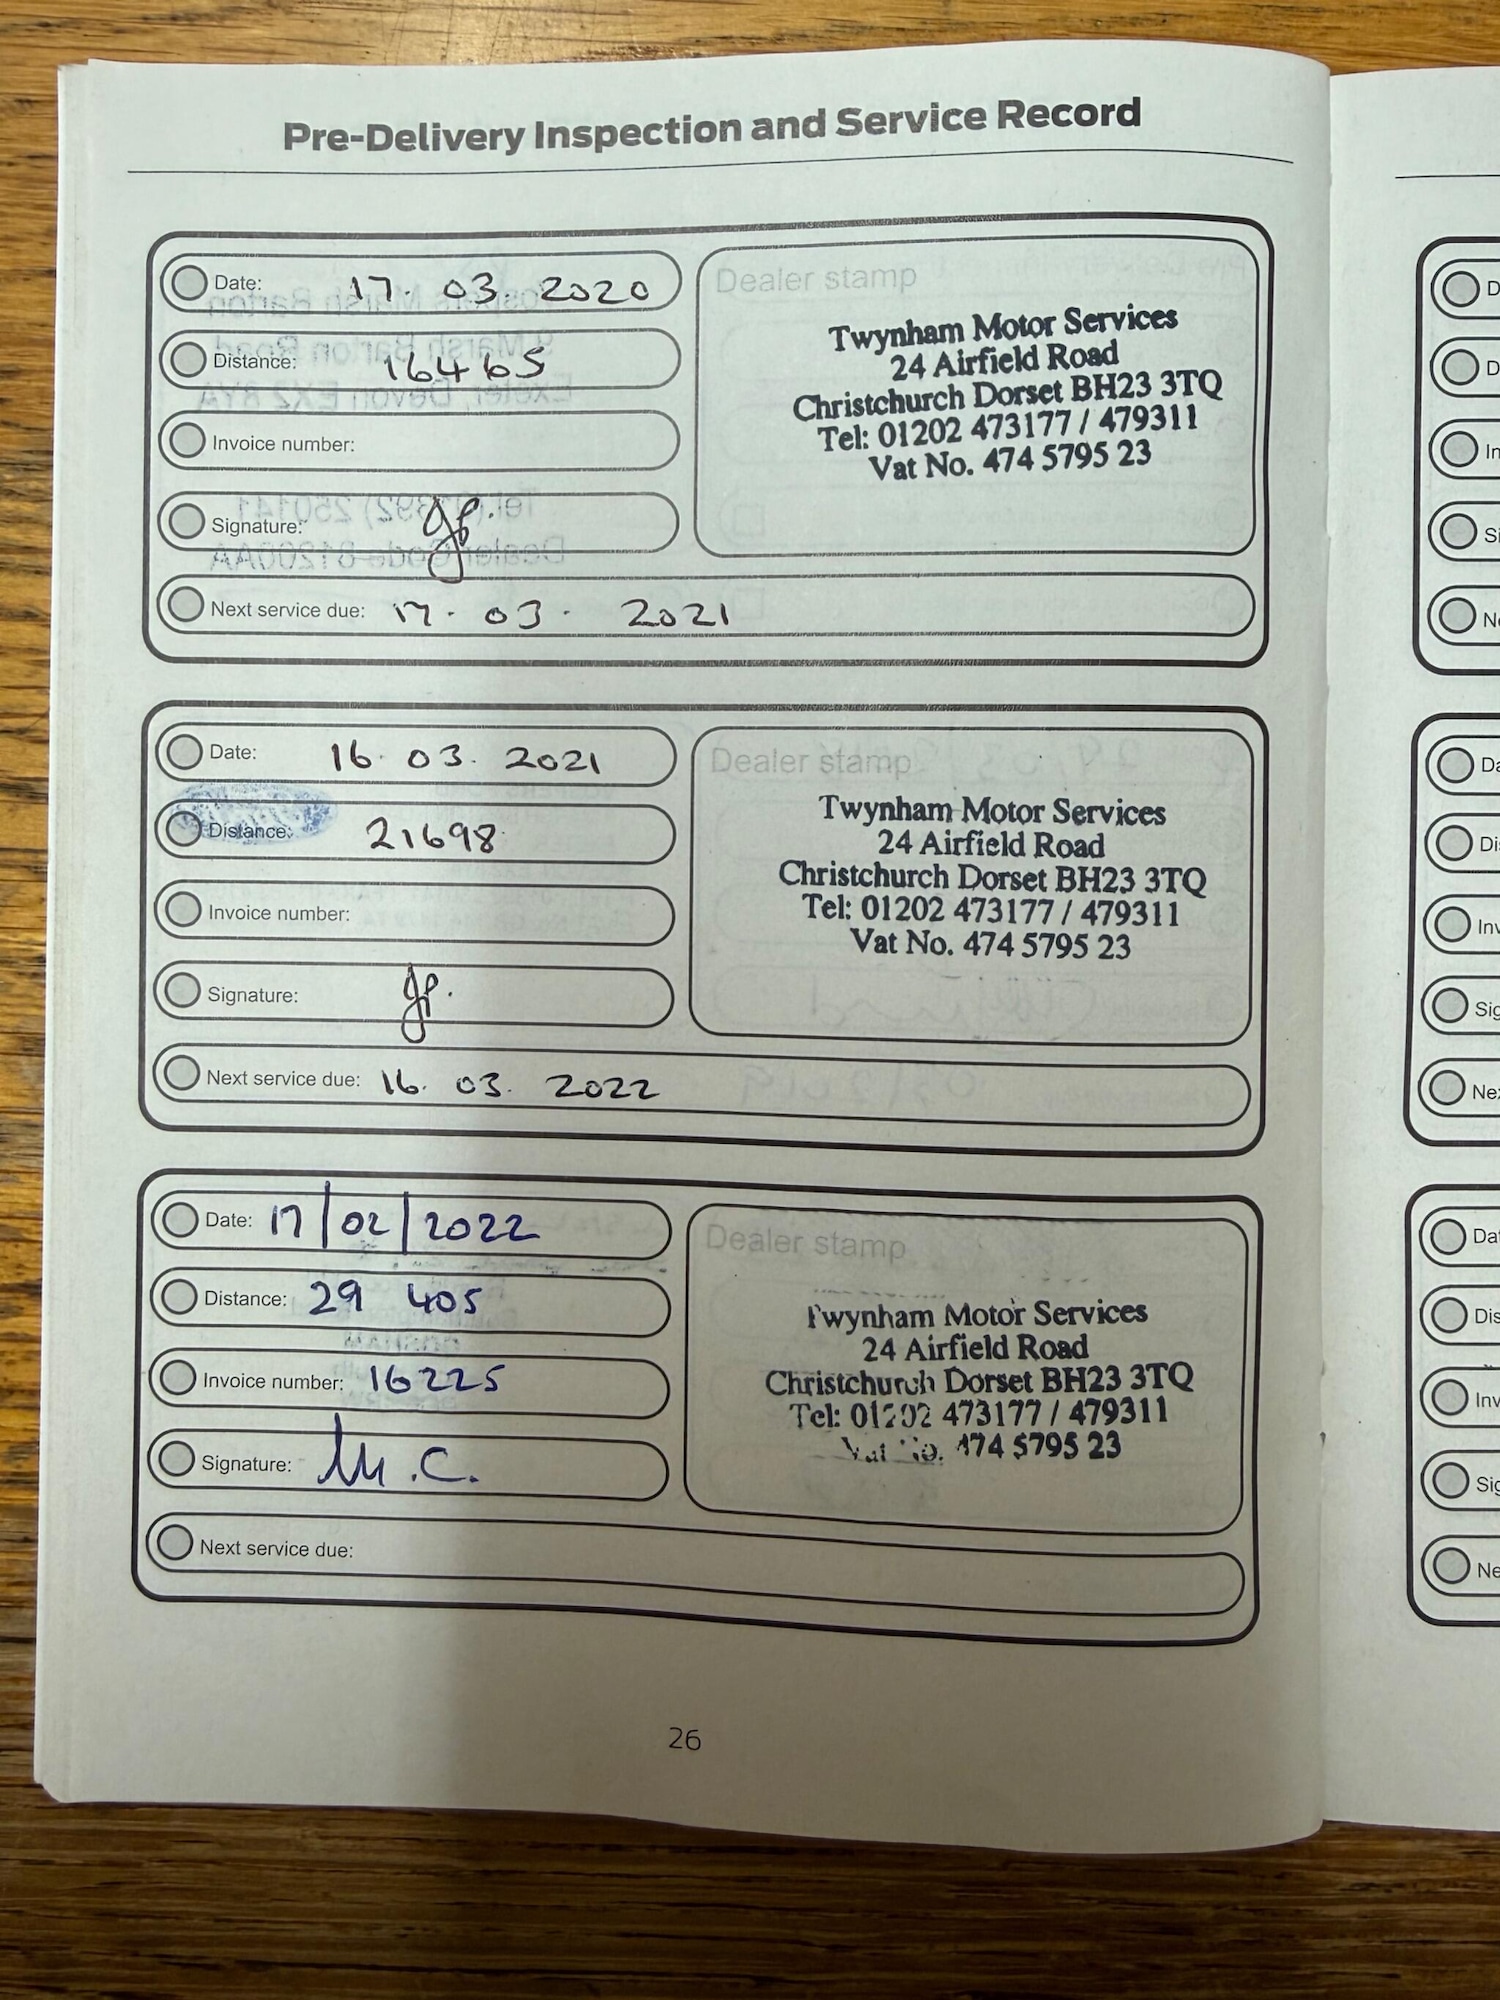 Pre-Delivery Inspection and Service Record
Date: 17. 03 2020
Distance: 16465
Invoice number:
Signature:
Next service due: 17. 03. 2021
Dealer stamp
Twynham Motor Services
24 Airfield Road
Christchurch Dorset BH23 3TQ
Tel: 01202 473177 / 479311
Vat No. 474 5795 23
Date: 16. 03. 2021
Distance: 21698
Invoice number:
Signature:
Next service due: 16. 03. 2022
Dealer stamp
Twynham Motor Services
24 Airfield Road
Christchurch Dorset BH23 3TQ
Tel: 01202 473177 / 479311
Vat No. 474 5795 23
Date: 17/02/2022
Distance: 29 405
Invoice number: 16225
Signature: M.C.
Next service due:
Dealer stamp
Twynham Motor Services
24 Airfield Road
Christchurch Dorset BH23 3TQ
Tel: 01202 473177 / 479311
Vat No. 474 5795 23
26